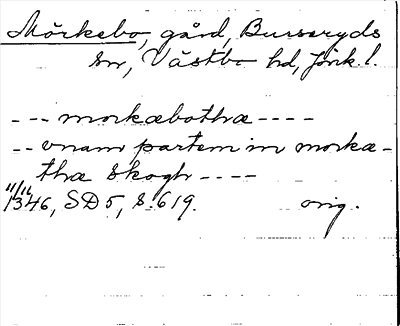 Mörkebo, gård, Burseryds
sn, Västbo hd, Jönk. l.
--- morkæbothæ ----
-- vnam partem in morkæ-
thæ skogh ----
11/11
1346, SD 5, s. 619. orig.